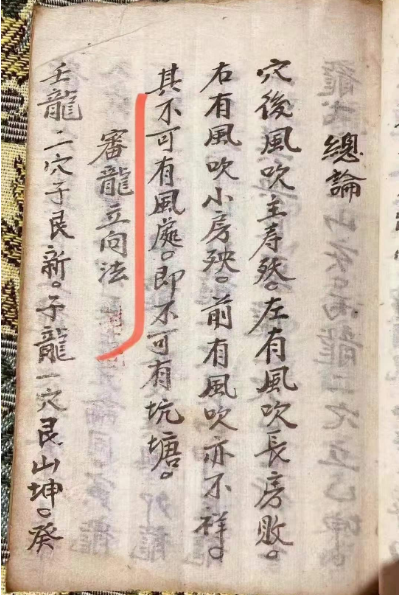 總論
穴後風吹主壽殀。左有風吹長房敗。
右有風吹小房殃。前有風吹亦不祥。
其不可有風處。即不可有坑塘。
審龍立向法
壬龍二穴子艮新。子龍一穴艮山坤。癸